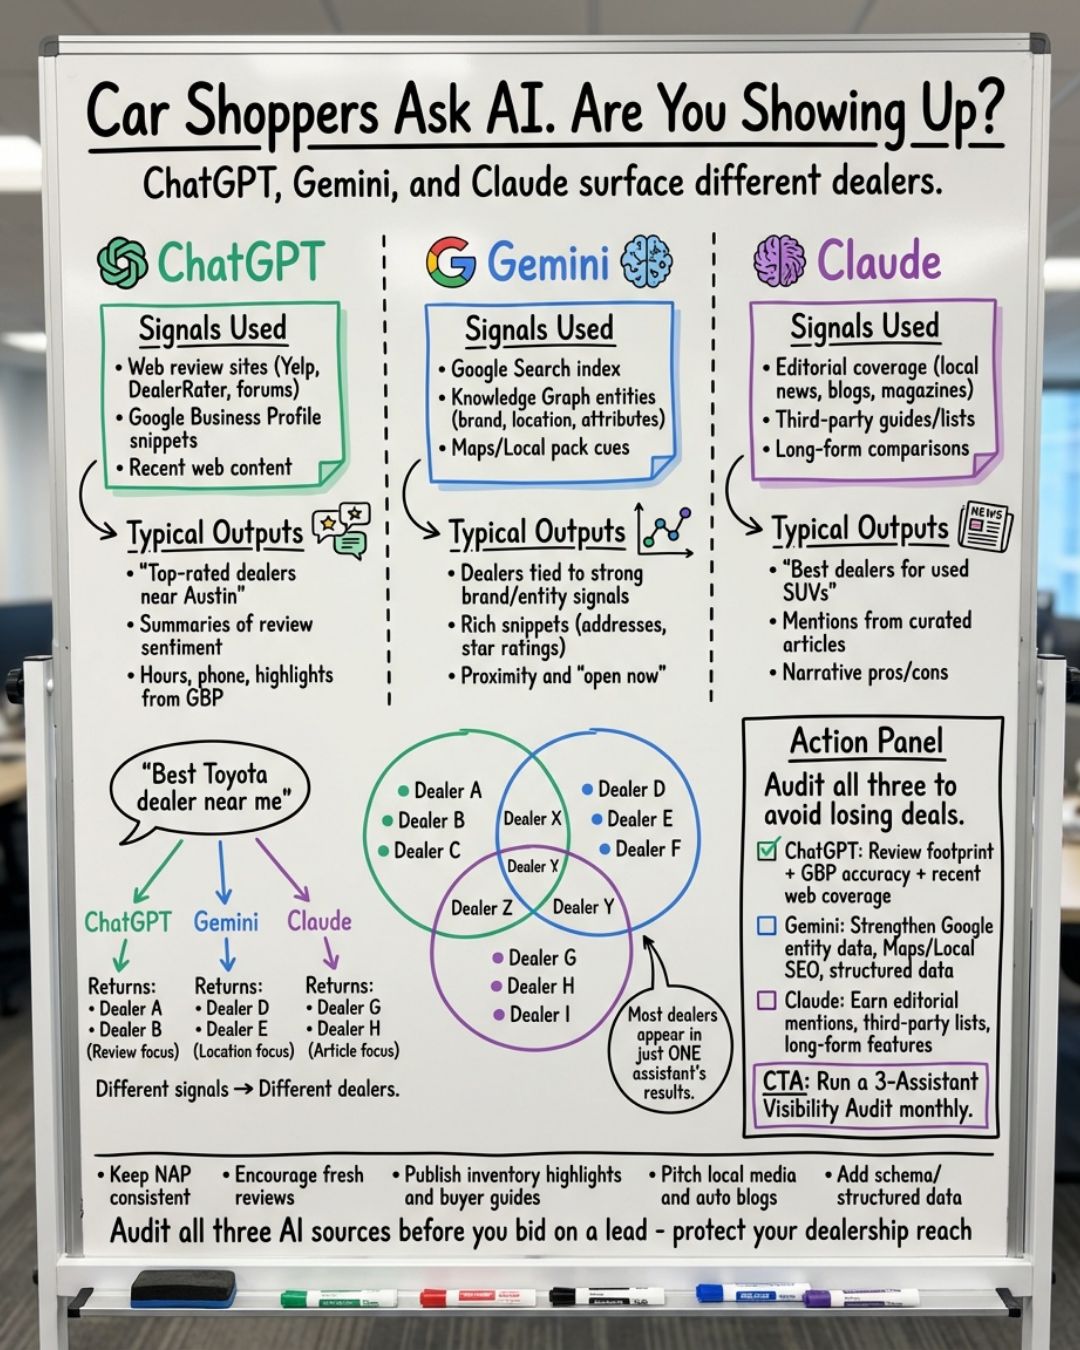 Car Shoppers Ask AI. Are You Showing Up?
ChatGPT, Gemini, and Claude surface different dealers.
ChatGPT
Signals Used
• Web review sites (Yelp,
DealerRater, forums)
• Google Business Profile
snippets
• Recent web content
Typical Outputs
• "Top-rated dealers
near Austin"
• Summaries of review
sentiment
• Hours, phone, highlights
from GBP
G Gemini
Signals Used
• Google Search index
• Knowledge Graph entities
(brand, location, attributes)
• Maps/Local pack cues
Typical Outputs
• Dealers tied to strong
brand/entity signals
• Rich snippets (addresses,
star ratings)
• Proximity and "open now"
Claude
Signals Used
• Editorial coverage (local
news, blogs, magazines)
• Third-party guides/lists
• Long-form comparisons
Typical Outputs
NEWS
• "Best dealers for used
SUVs"
• Mentions from curated
articles
• Narrative pros/cons
"Best Toyota
dealer near me"
ChatGPT
Returns:
• Dealer A
• Dealer B
(Review focus)
Gemini
Returns:
• Dealer D
• Dealer E
(Location focus)
Claude
Returns:
• Dealer G
• Dealer H
(Article focus)
Different signals → Different dealers.
• Dealer A
• Dealer B
• Dealer C
Dealer X
• Dealer D
• Dealer E
• Dealer F
Dealer X
Dealer Z
Dealer Y
• Dealer G
• Dealer H
• Dealer I
Most dealers
appear in
just ONE
assistant's
results.
Action Panel
Audit all three to
avoid losing deals.
ChatGPT: Review footprint
+ GBP accuracy + recent
web coverage
Gemini: Strengthen Google
entity data, Maps/Local
SEO, structured data
Claude: Earn editorial
mentions, third-party lists,
long-form features
CTA: Run a 3-Assistant
Visibility Audit monthly.
• Keep NAP
consistent
• Encourage fresh
reviews
• Publish inventory highlights
and buyer guides
• Pitch local media
and auto blogs
• Add schema/
structured data
Audit all three AI sources before you bid on a lead - protect your dealership reach